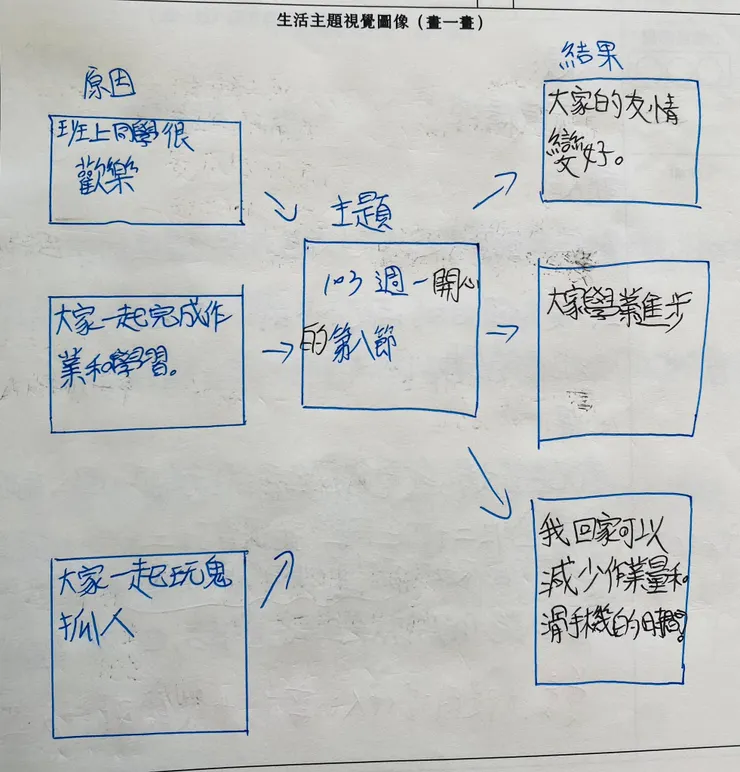 生活主題視覺圖像（畫一畫）
原因
班上同學很
歡樂
大家一起完成作
業和學習。
大家一起玩鬼
抓人
主題
103 週一開心
的第八節
結果
大家的友情
變好。
大家學業進步
我回家可以
減少作業量和
滑手機的時間。